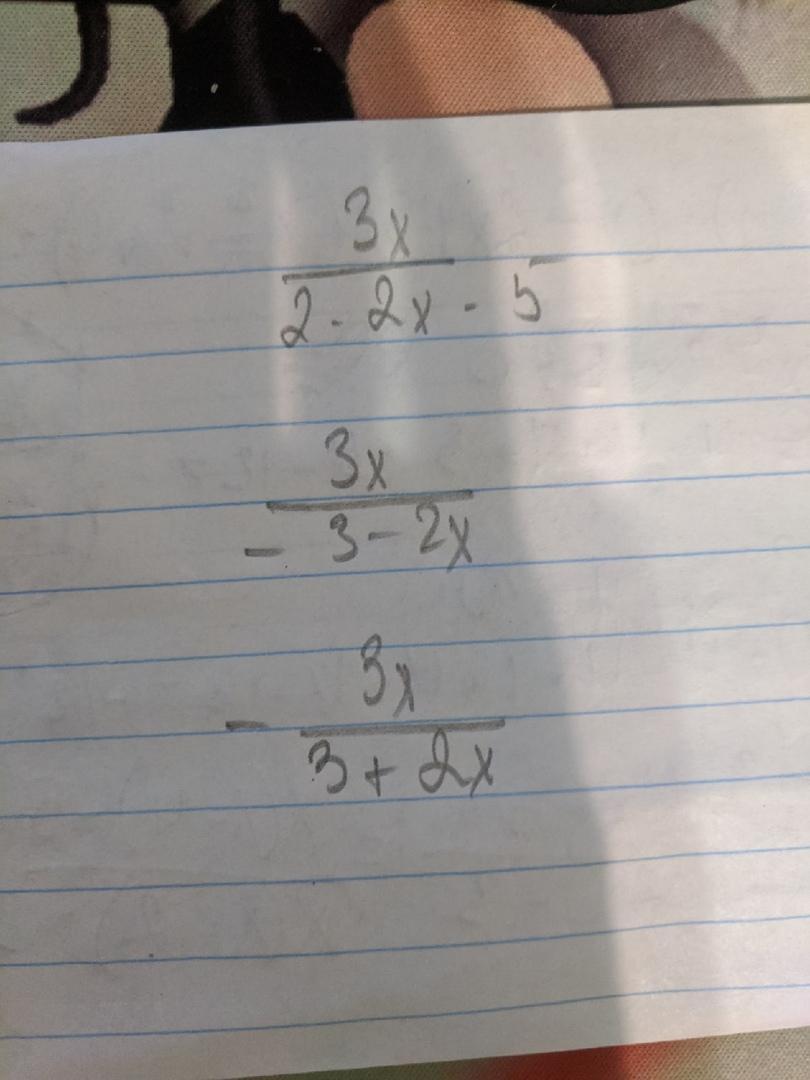 3x
2 - 2x - 5
3x
- 3 - 2x
- 3x
3 + 2x